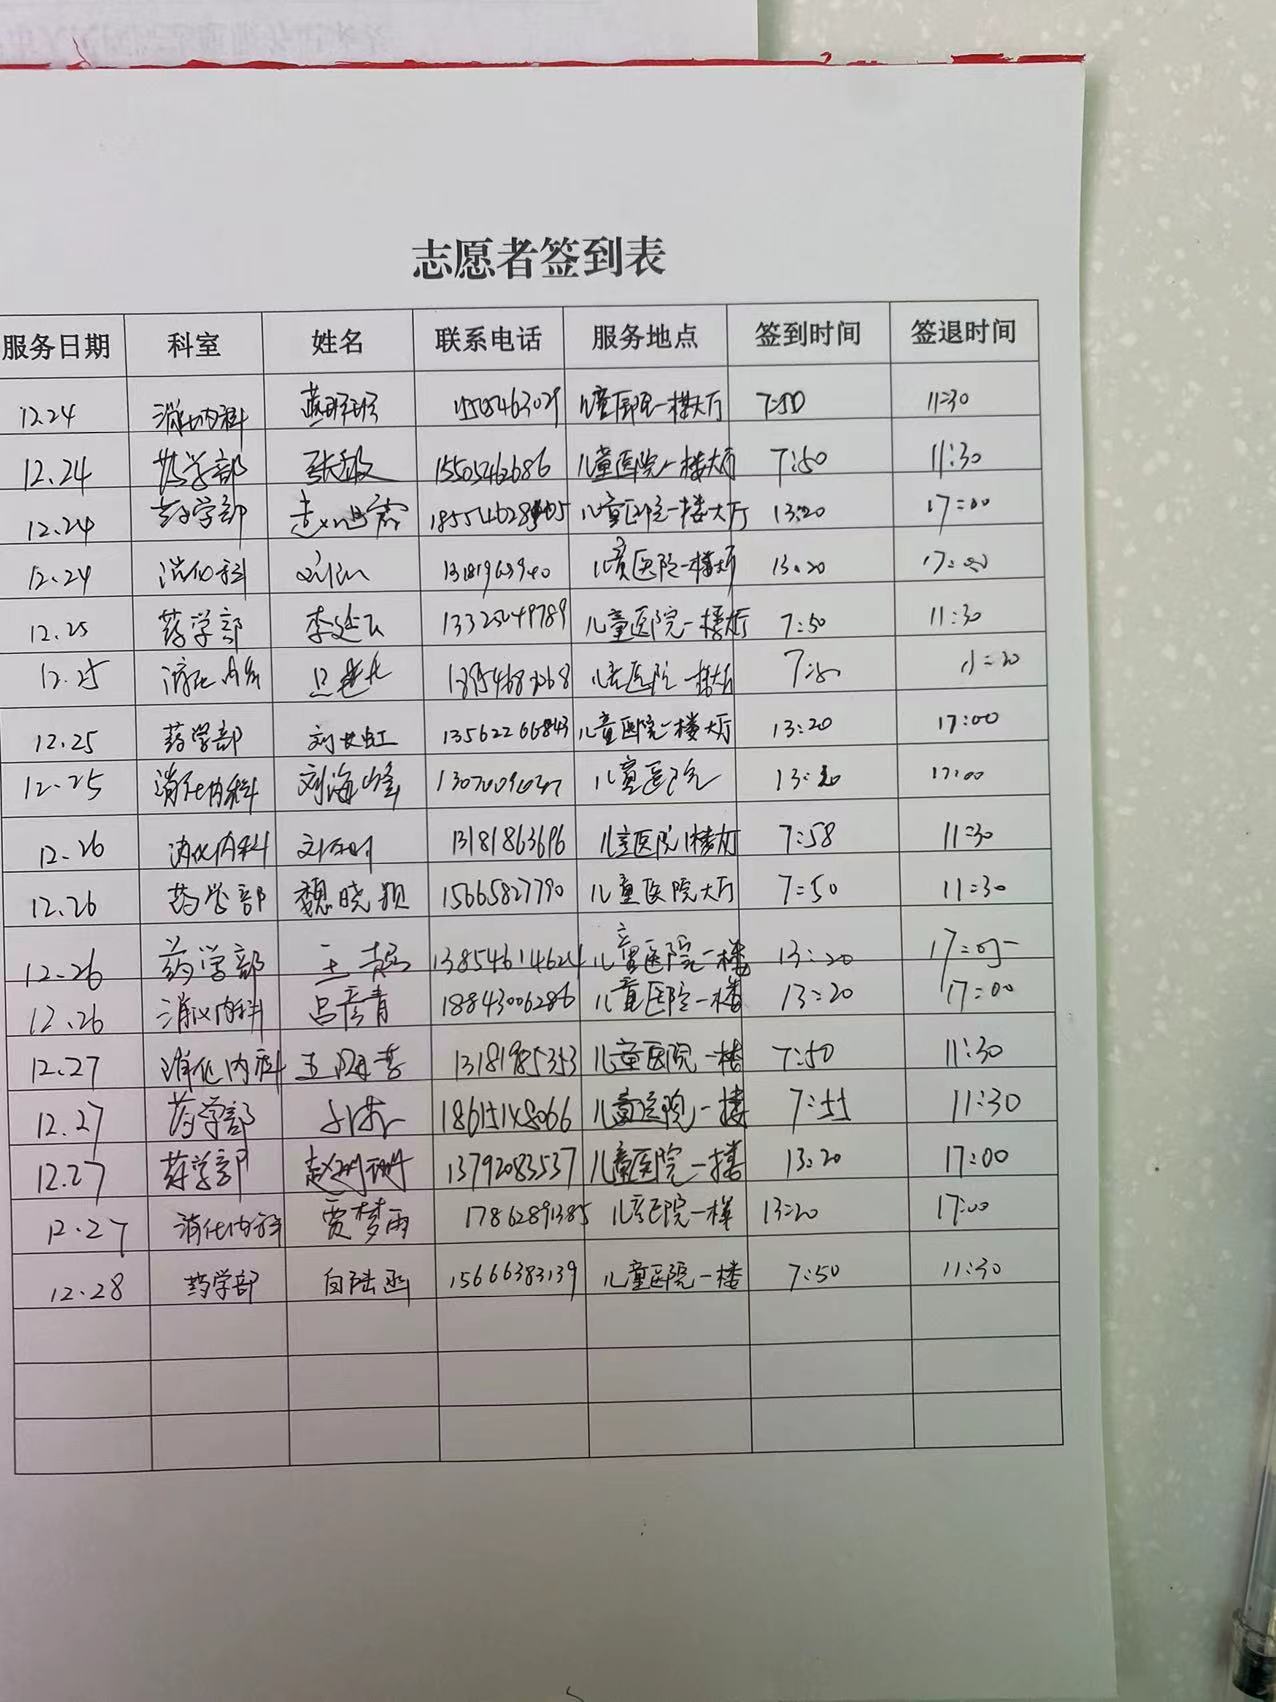 志愿者签到表
服务日期 科室 姓名 联系电话 服务地点 签到时间 签退时间
12.24 消化内科 儿童医院一楼大厅 7:50 11:30
12.24 药学部 张敏 15505462686 儿童医院一楼大厅 7:50 11:30
12.24 药学部 儿童医院一楼大厅 13:20 17:00
12.24 消化科 儿童医院一楼大厅 13:20 17:00
12.25 药学部 李延飞 儿童医院一楼大厅 7:50 11:30
12.25 消化内科 儿童医院一楼大厅 7:50 11:30
12.25 药学部 刘长虹 13562266843 儿童医院一楼大厅 13:20 17:00
12.25 消化内科 刘海峰 儿童医院 13:20 17:00
12.26 消化内科 13181863696 儿童医院1楼大厅 7:58 11:30
12.26 药学部 魏晓颖 15665827790 儿童医院大厅 7:50 11:30
12.26 药学部 13854614624 儿童医院一楼 13:20 17:05
12.26 消化内科 吕彦青 18843006286 儿童医院一楼 13:20 17:00
12.27 消化内科 13181985353 儿童医院一楼 7:50 11:30
12.27 药学部 18615148066 儿童医院一楼 7:55 11:30
12.27 药学部 赵珊珊 13792083537 儿童医院一楼 13:20 17:00
12.27 消化内科 贾梦雨 17862891385 儿童医院一楼 13:20 17:00
12.28 药学部 白陆函 15666383139 儿童医院一楼 7:50 11:30